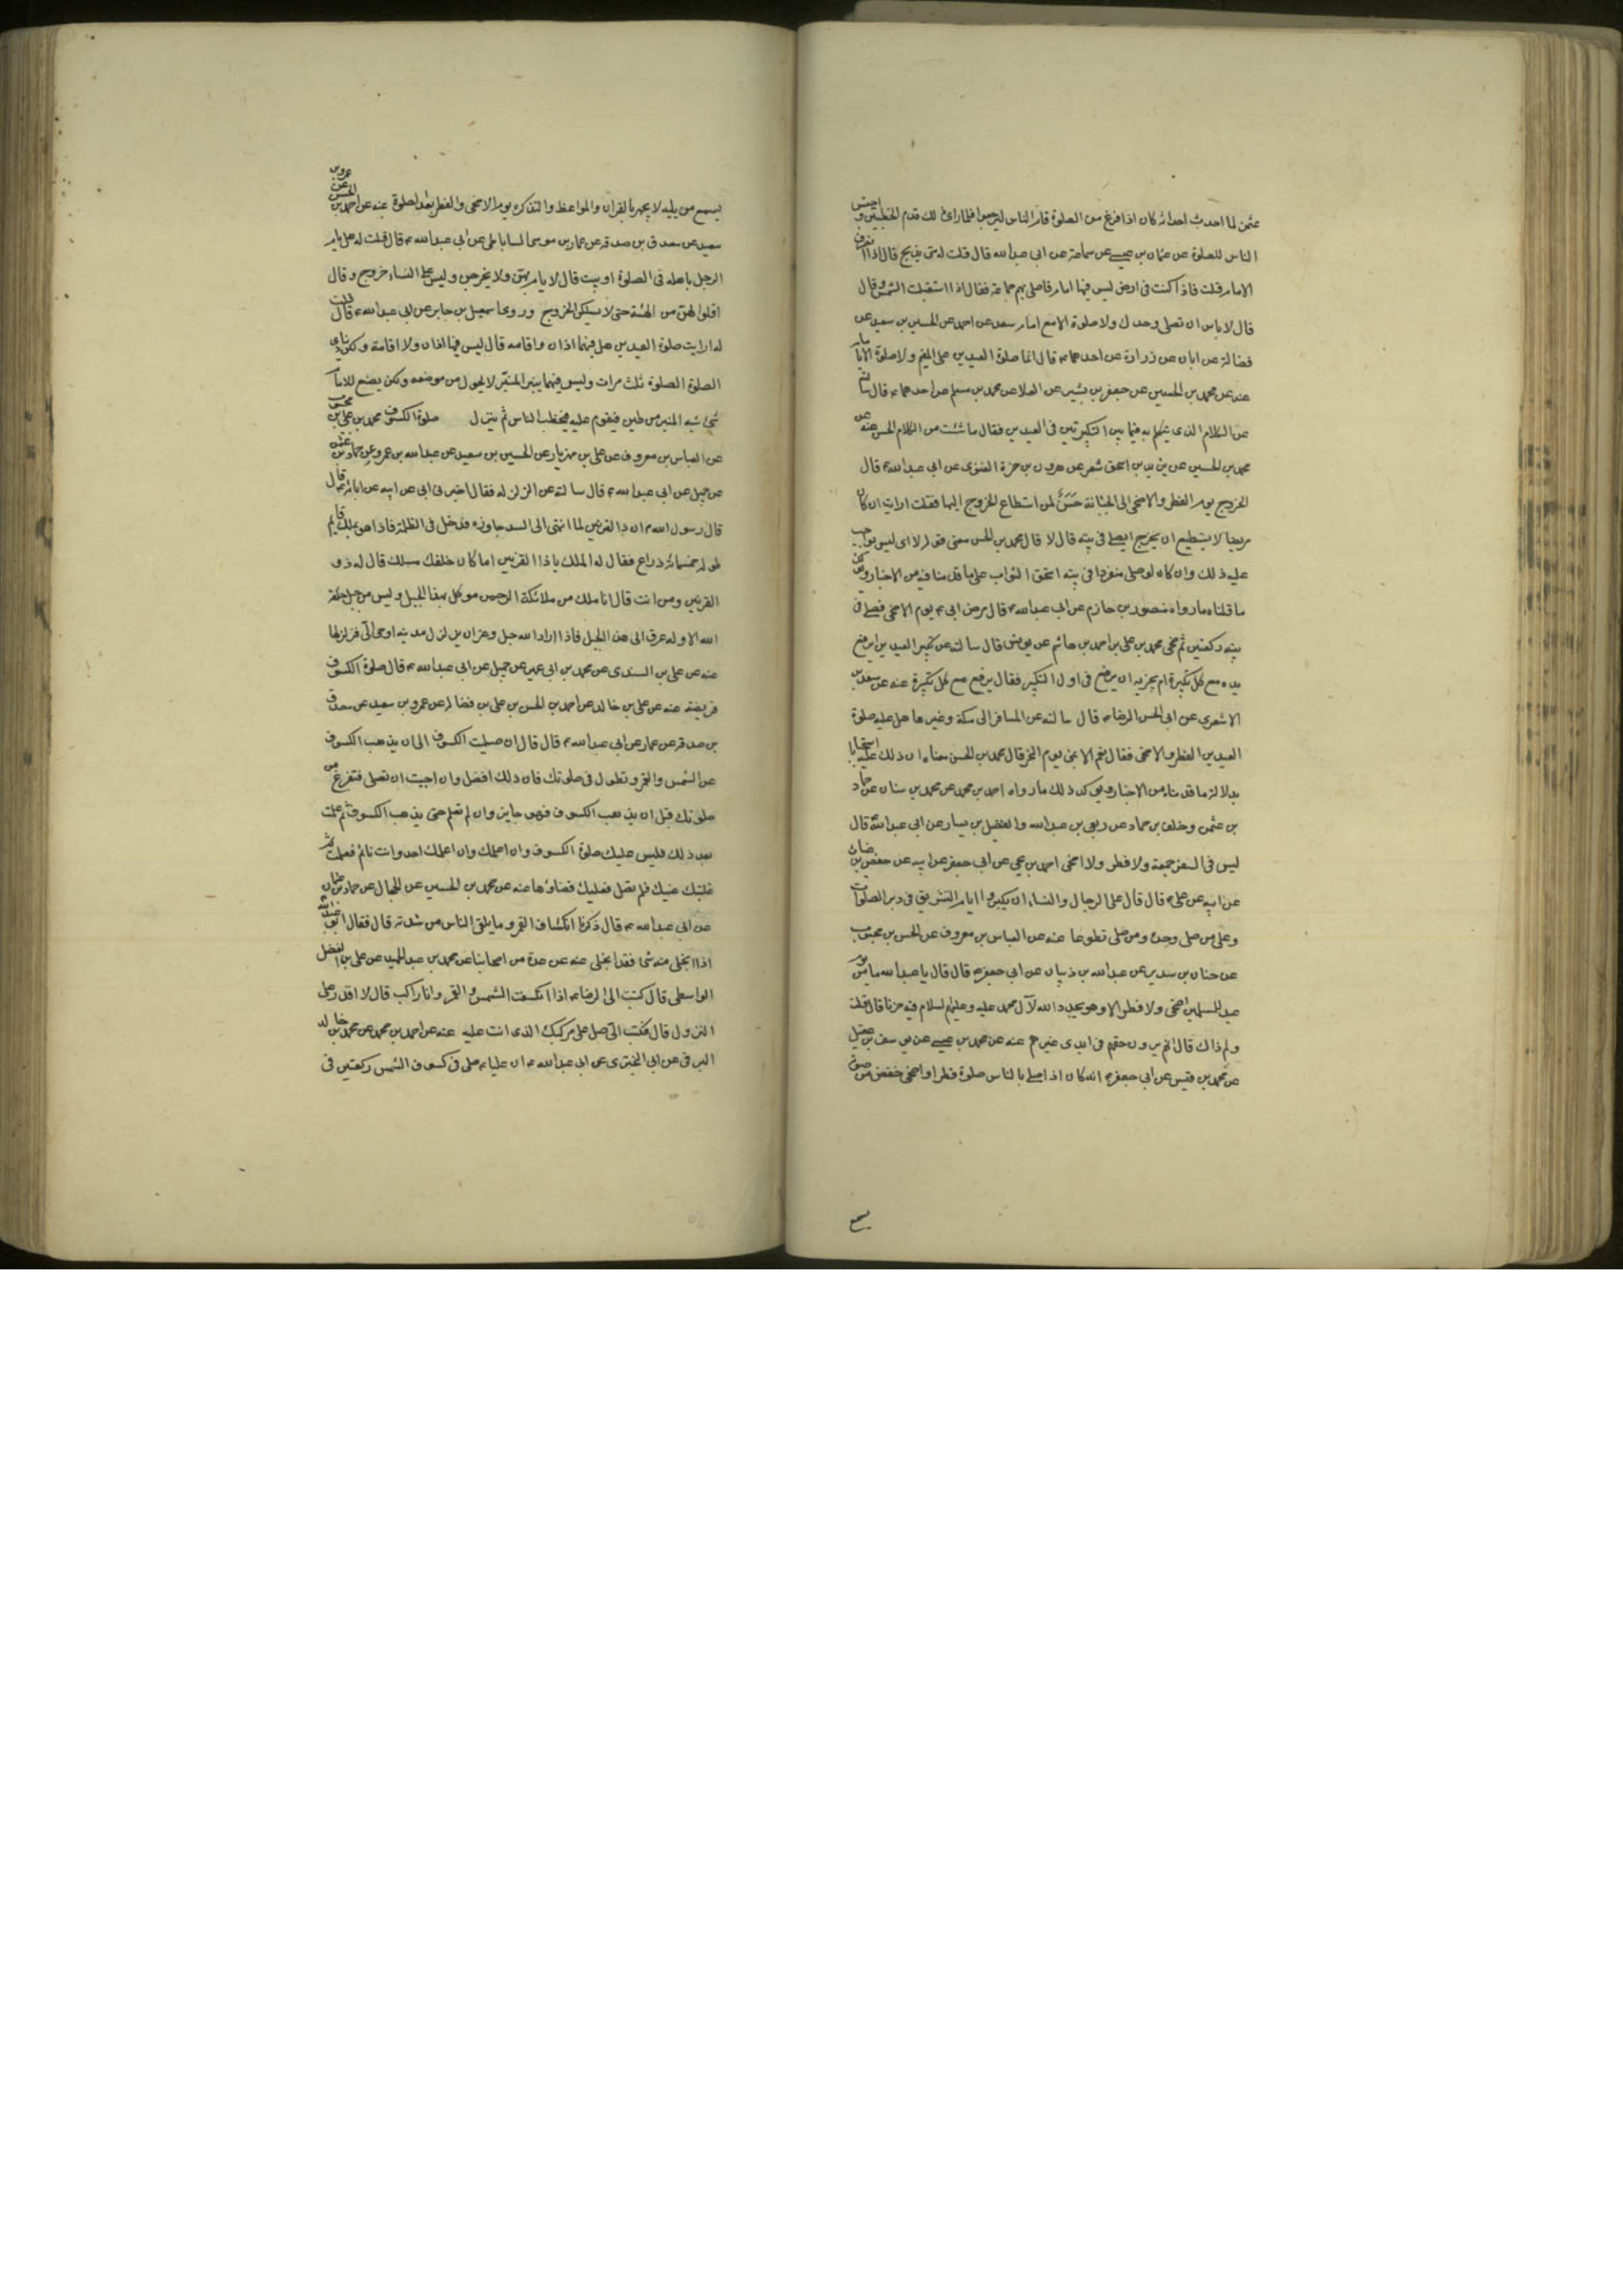 عثمن لما احدث احداثه كان اذا فرغ من الصلوة قام الناس ليرجعوا فلما راى ذلك قدم الخطبتين واحتبس
الناس للصلوة عن عثمان بن عيسى عن سماعة عن ابى عبد الله قال قلت له متى يذبح قال اذا انصرف
الامام قلت فاذا كنت فى ارض ليس فيها امام فاصلى بهم جماعة فقال اذا استقبلت الشمس وقال
قال لا باس ان تصلى وحدك ولا صلوة الا مع امام سعد عن احمد عن الحسين بن سعيد عن
فضالة عن ابان عن زرارة عن احدهما ع قال انما صلوة العيدين على المقيم ولا صلوة الا بامام
عنه عن محمد بن الحسين عن جعفر بن بشير عن العلا عن محمد بن مسلم عن احدهما ع قال سالته
عن الكلام الذى يتكلم به فيما بين التكبيرتين فى العيدين فقال ما شئت من الكلام الحسن عنه عن
محمد بن الحسين عن يزيد بن اسحق شعر عن هرون بن حمزة الغنوى عن ابى عبد الله ع قال
الخروج يوم الفطر والاضحى الى الجبانة حَسَنٌ لمن استطاع الخروج اليها فقلت ارايت ان كان
مريضا لا يستطيع ان يخرج ايصلى فى بيته قال لا قال محمد بن الحسن معنى قوله لا اى ليس بواجب
عليه ذلك وان كان لو صلى منفردا فى بيته استحق الثواب على ما قدمناه من الاخبار ويؤكد
ما قلناه ما رواه منصور بن حازم عن ابى عبد الله ع قال مرض ابى ع يوم الاضحى فصلى فى
بيته ركعتين ثم ضحى محمد بن على بن احمد بن هاشم عن يونس قال سالته عن تكبير العيدين ايرفع
يده مع كل تكبيرة ام يجزيه ان يرفع فى اول التكبير فقال يرفع مع كل تكبيرة عنه عن سعد بن
الاشعرى عن ابى الحسن الرضا ع قال سالته عن المسافر الى مكة وغيرها هل عليه صلوة
العيدين الفطر والاضحى فقال نعم الا بمنى يوم النحر قال محمد بن الحسن معناه ان ذلك عليه استحبابا
بدلالة ما قدمناه من الاخبار ويؤكد ذلك ما رواه احمد بن محمد عن محمد بن سنان عن حماد
بن عثمن وخلف بن حماد عن ربعى بن عبد الله والفضيل بن يسار عن ابى عبد الله ع قال
ليس فى السفر جمعة ولا فطر ولا اضحى احمد بن يحيى عن ابى جعفر عن ابيه عن حفص بن غياث
عن ابيه عن على ع قال قال على الرجال والنساء ان يكبروا ايام التشريق فى دبر الصلوات
وعلى من صلى وحده ومن صلى تطوعا عنه عن العباس بن معروف عن الحسن بن محبوب
عن حنان بن سدير عن عبد الله بن ذبيان عن ابى جعفر ع قال قال يا عبد الله ما من يوم
عيد للمسلمين اضحى ولا فطر الا وهو يجدد الله لآل محمد عليه وعليهم السلام فيه حزنا قال قلت
ولم ذاك قال انهم يرون حقهم فى ايدى غيرهم عنه عن محمد بن عيسى عن يوسف بن عقيل
عن محمد بن قيس عن ابى جعفر ع انه كان اذا صلى بالناس صلوة فطر او اضحى خفض من صوته
يسمع
يسمع من يليه لا يجهر بالقران والمواعظ والتذكرة يوم الاضحى والفطر بعد الصلوة عنه عن احمد بن الحسن عن عمرو بن
سعيد عن مصدق بن صدقة عن عمار بن موسى الساباطى عن ابى عبد الله ع قال قلت له هل يام
الرجل باهله فى الصلوة او بيت قال لا يام بهن ولا يخرجن وليس على النساء خروج وقال
اقلوا لهن من الهيئة حتى لا يسئلن الخروج وروى اسمعيل بن جابر عن ابى عبد الله ع قال قلت
له ارايت صلوة العيدين هل فيهما اذان واقامه قال ليس فيهما اذان ولا اقامة ولكن ينادى
الصلوة الصلوة ثلث مرات وليس فيهما منبر المنبر لا يحول من موضعه ولكن يصنع للامام
شئ شبه المنبر من طين فيقوم عليه فيخطب الناس ثم ينزل صلوة الكسوف محمد بن على بن محبوب
عن العباس بن معروف عن على بن مهزيار عن الحسين بن سعيد عن عبد الله بن عمرو عن حماد بن عثمن
عن جميل عن ابى عبد الله ع قال سالته عن الزلزله فقال اخبرنى ابى عن ابيه عن ابائه ع قال
قال رسول الله ص ان ذا القرنين لما انتهى الى السد جاوزه فدخل فى الظلمة فاذا هو بملك قايم
طوله خمسمائة ذراع فقال له الملك يا ذا القرنين اما كان خلفك مسلك قال له ذو
القرنين ومن انت قال انا ملك من ملائكة الرحمن موكل بهذا الجبل وليس من جبل خلقه
الله الا وله عرق الى هذا الجبل فاذا اراد الله جل وعز ان يزلزل مدينه اوحى الىّ فزلزلها
عنه عن على بن السندى عن محمد بن ابى عمير عن جميل عن ابى عبد الله ع قال صلوة الكسوف
فريضة عنه عن على بن خالد عن احمد بن الحسن بن على بن فضال عن عمرو بن سعيد عن مصدق
بن صدقة عن عمار عن ابى عبد الله ع قال قال ان صليت الكسوف الى ان يذهب الكسوف
عن الشمس والقمر وتطول فى صلوتك فان ذلك افضل وان احببت ان تصلى فتفرغ من
صلوتك قبل ان يذهب الكسوف فهو جايز وان لم تعلم حتى يذهب الكسوف ثم علمت
بعد ذلك فليس عليك صلوة الكسوف وان اعلمك احد وانت نائم فعلمت ثم
غلبتك عينك فلم تصل فعليك قضاؤها عنه عن محمد بن الحسين عن الحجال عن حماد بن عثمان
عن ابى عبد الله ع قال ذكرنا انكساف القمر وما يلقى الناس من شدته قال فقال ابو عبد الله ع
اذا انجلى منه شئ فقد انجلى عنه عن عدة من اصحابنا عن محمد بن عبد الحميد عن على بن الفضل
الواسطى قال كتبت الى الرضا ع اذا انكسفت الشمس والقمر وانا راكب قال لا اقدر على
النزول قال فكتب الىّ صل على مركبك الذى انت عليه عنه عن احمد بن محمد عن محمد بن خالد
البرقى عن ابى البخترى عن ابى عبد الله ع ان عليا ع صلى فى كسوف الشمس ركعتين فى